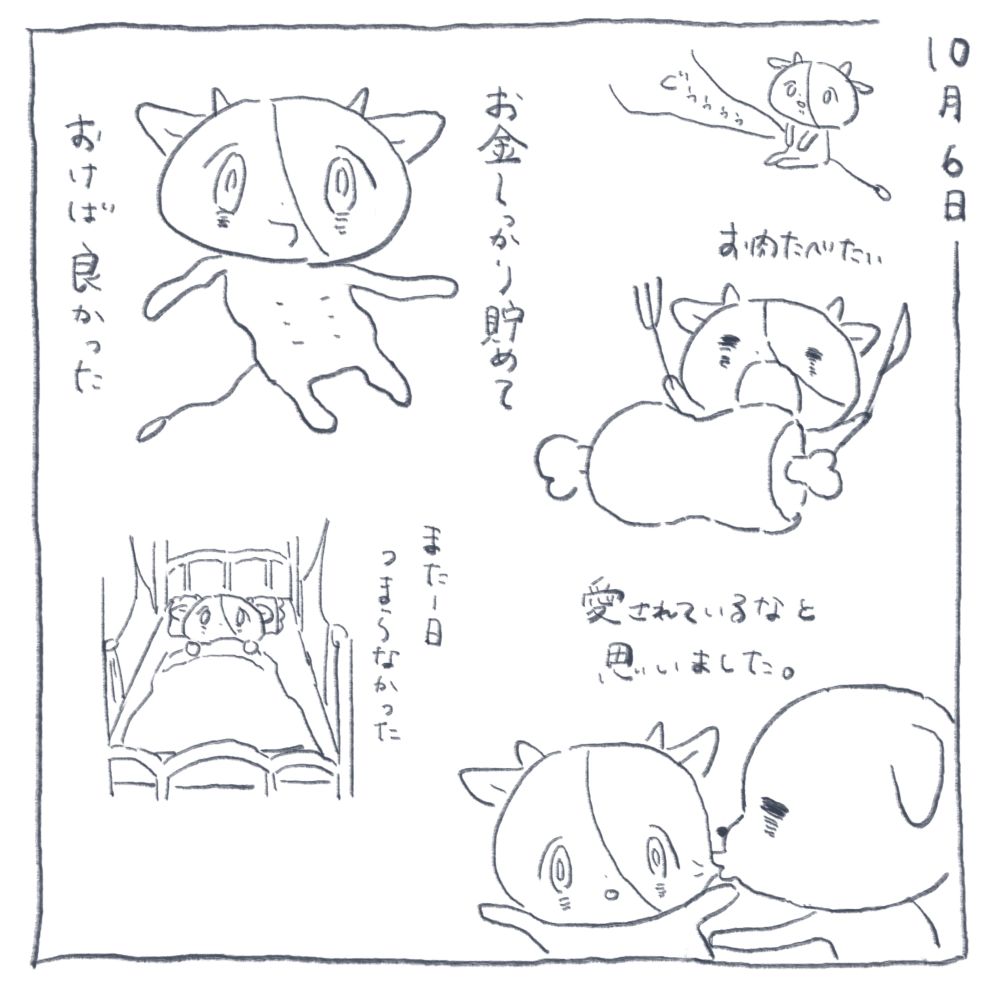 10月6日
ぐぅぅぅぅ
お肉たべたい
愛されているなと
思いました。
お金しっかり貯めて
おけば良かった
また一日
つまらなかった